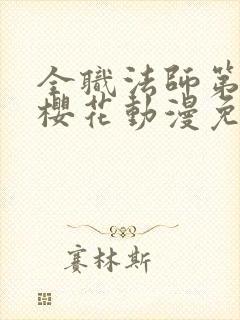 全職法師第
櫻花動漫免
賽林斯